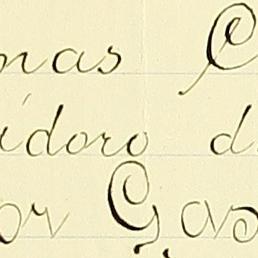 mas C
idoro d
or Gas